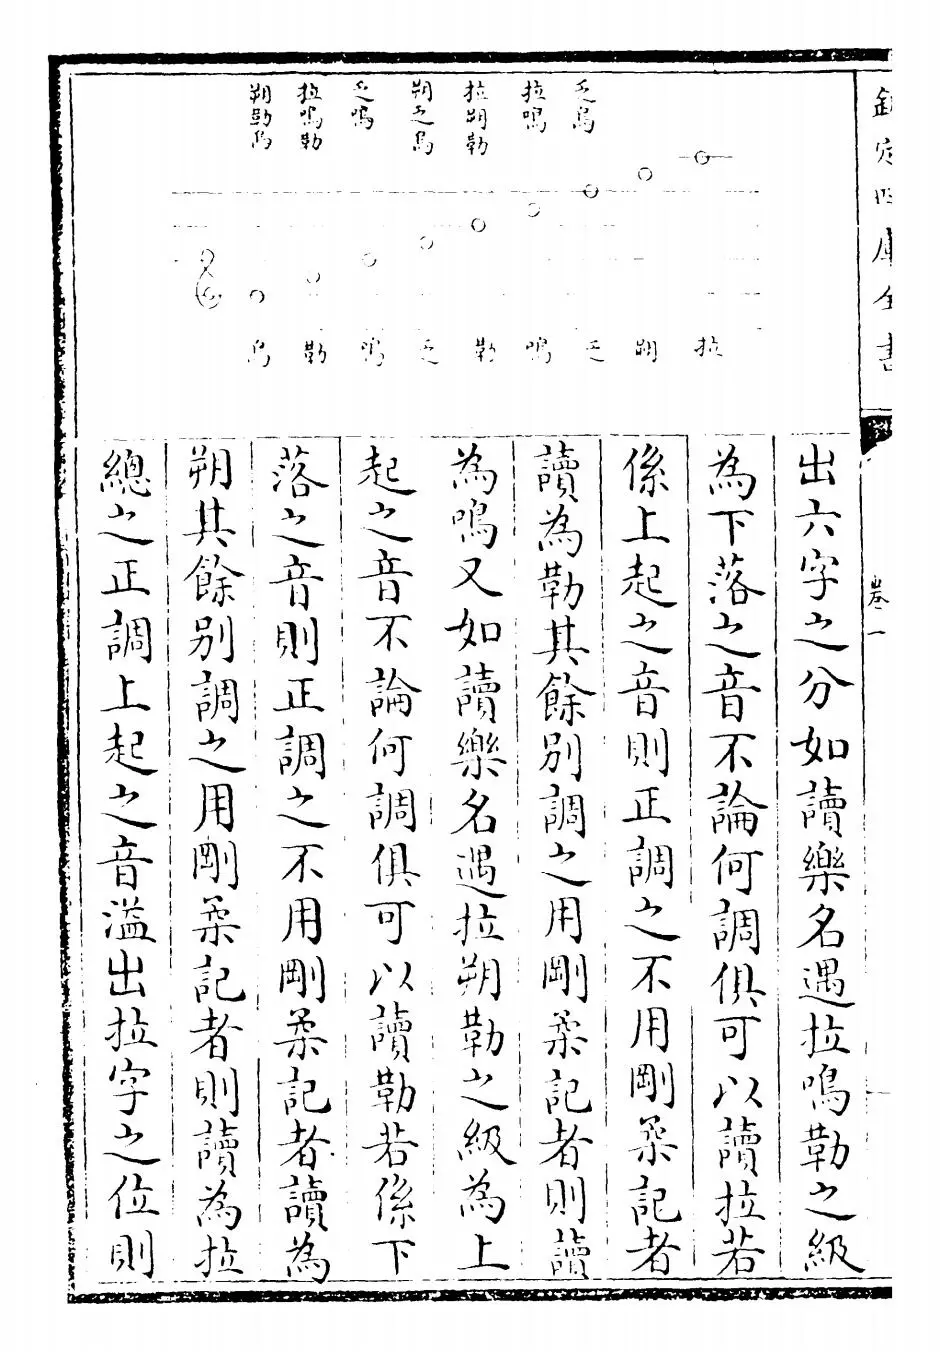 欽定四庫全書
卷一
乏烏
拉鳴
拉朔勒
朔乏烏
乏鳴
拉鳴勒
朔勒烏
拉
朔
乏
鳴
勒
乏
鳴
勒
烏
出六字之分如讀樂名遇拉鳴勒之級
為下落之音不論何調俱可以讀拉若
係上起之音則正調之不用剛柔記者
讀為勒其餘別調之用剛柔記者則讀
為鳴又如讀樂名遇拉朔勒之級為上
起之音不論何調俱可以讀勒若係下
落之音則正調之不用剛柔記者讀為
朔其餘別調之用剛柔記者則讀為拉
總之正調上起之音溢出拉字之位則